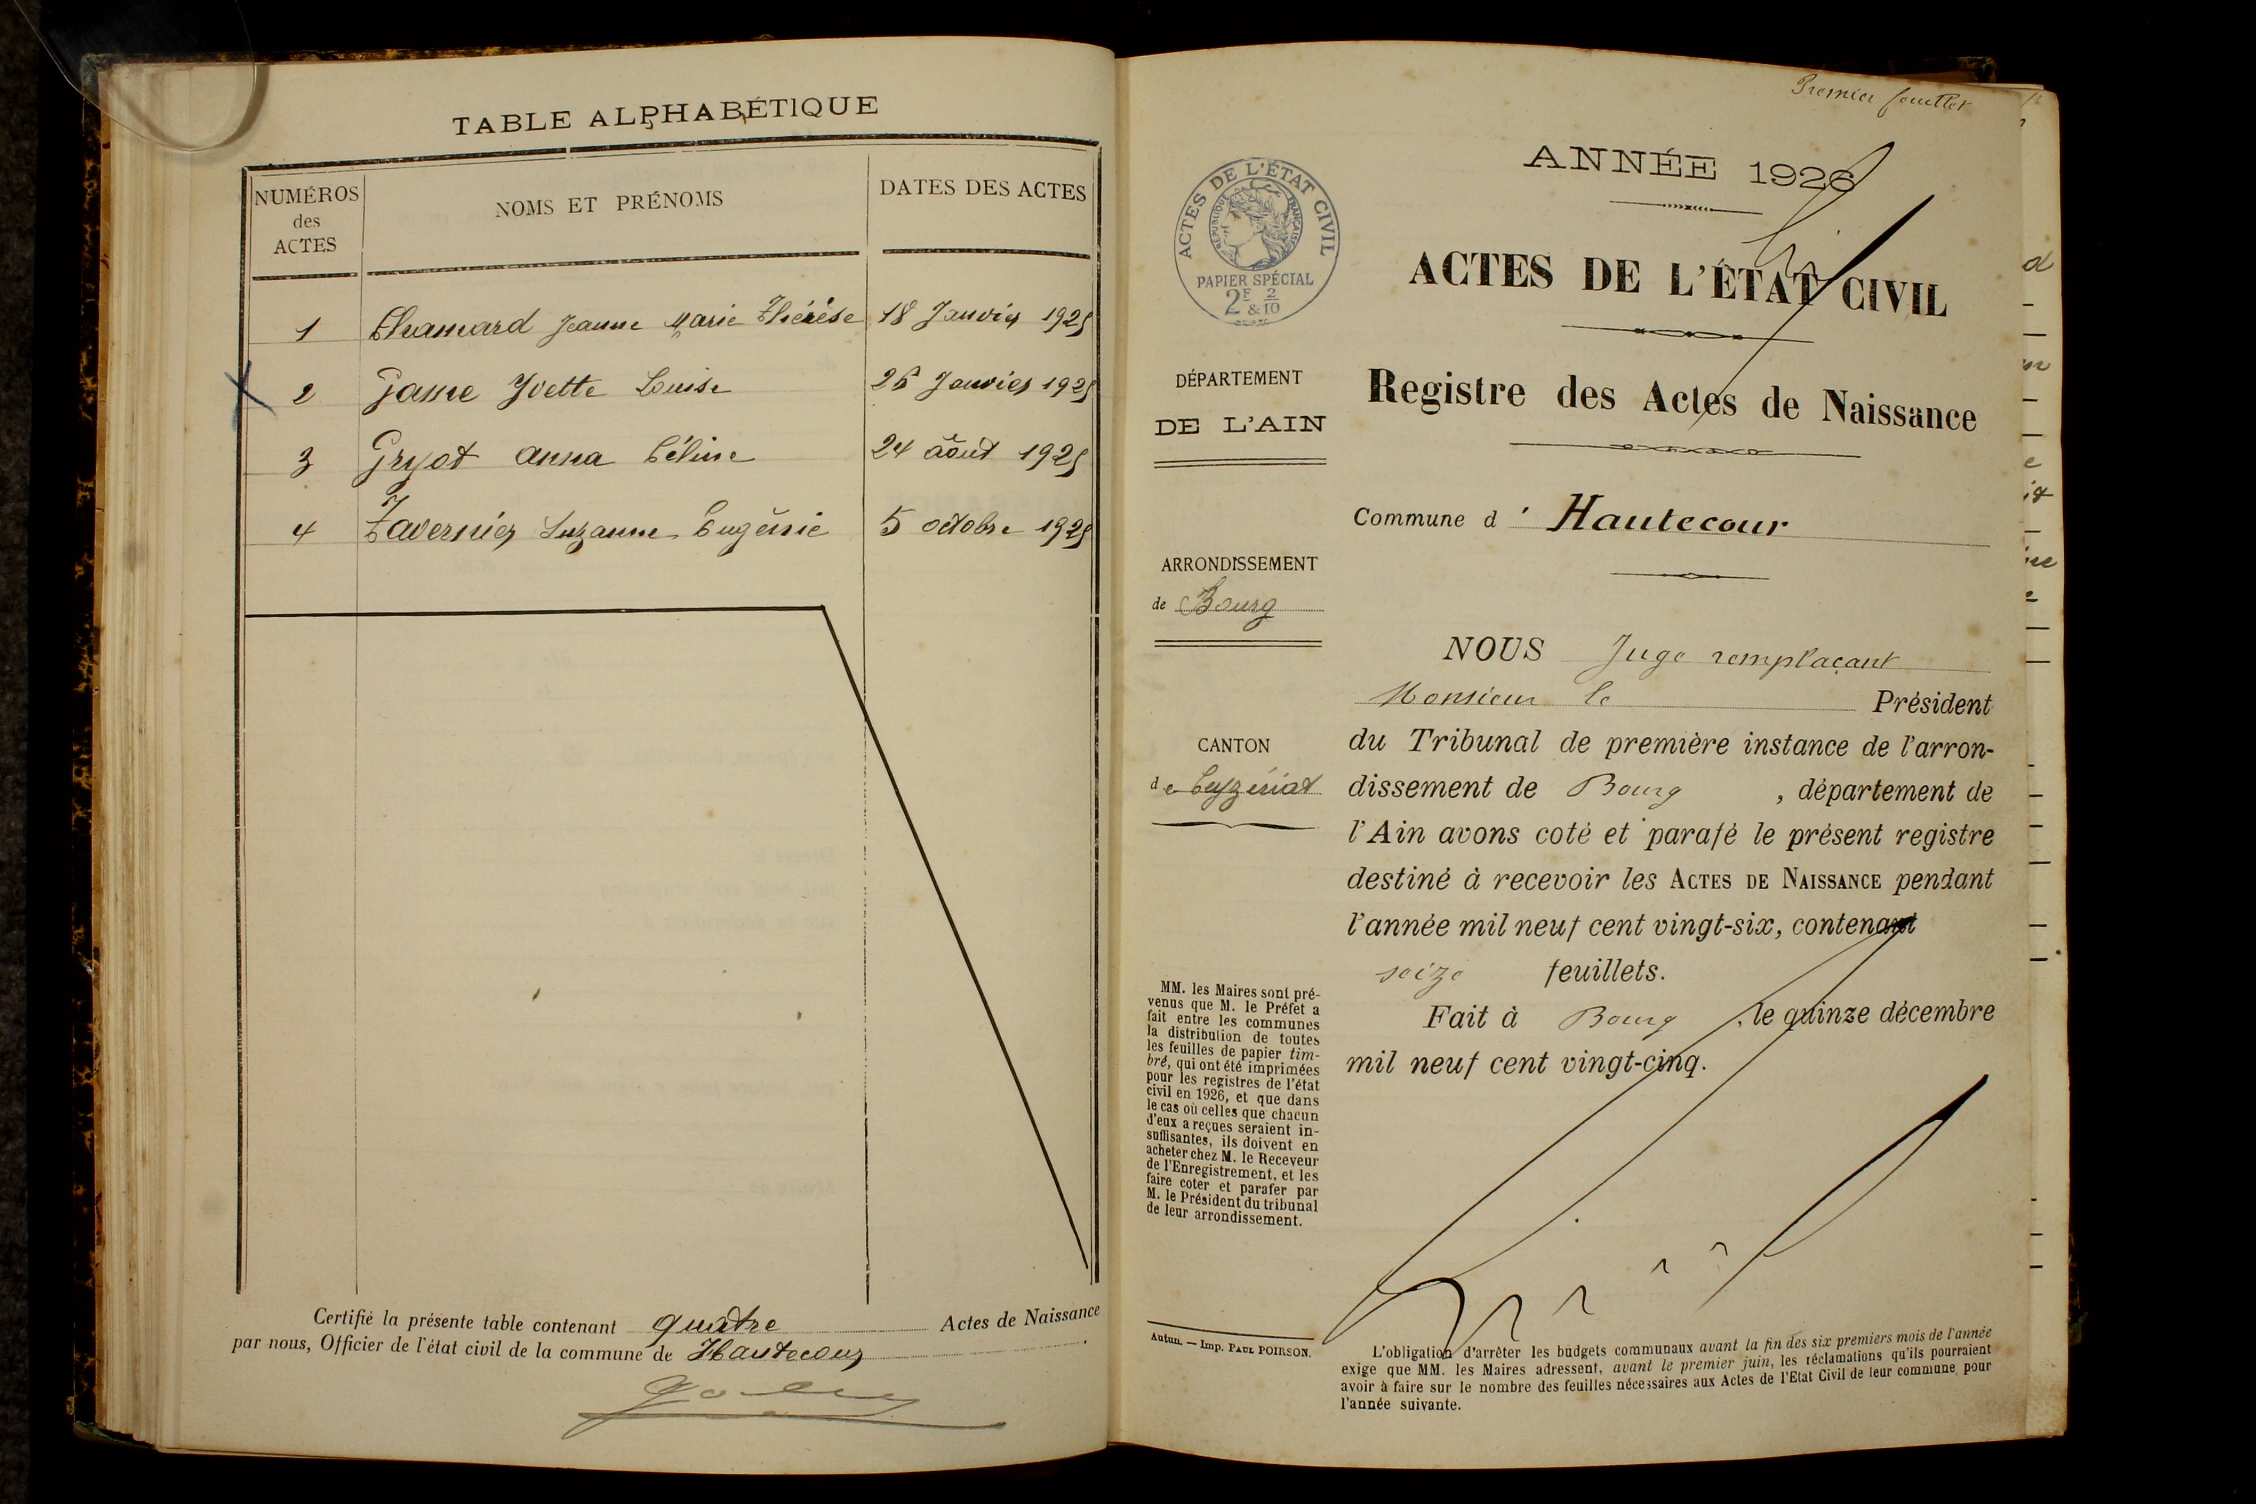 TABLE ALPHABÉTIQUE
NUMÉROS
des
ACTES
NOMS ET PRÉNOMS
DATES DES ACTES
1 Chamard Jeanne Marie Thérèse 18 Janvier 1925
2 Game Yvette Louise 26 Janvier 1925
3 Gryot Anna Céline 24 août 1925
4 Tavernier Suzanne Eugénie 5 octobre 1925
Certifié la présente table contenant quatre Actes de Naissance
par nous, Officier de l'état civil de la commune de Hautecour
Premier feuillet
ANNÉE 1926
ACTES DE L'ÉTAT CIVIL
RÉPUBLIQUE FRANÇAISE
PAPIER SPÉCIAL
2F & 2/10
ACTES DE L'ÉTAT CIVIL
Registre des Actes de Naissance
DÉPARTEMENT
DE L'AIN
Commune d' Hautecour
ARRONDISSEMENT
de Bourg
CANTON
de Ceyzériat
NOUS Juge remplaçant
Monsieur le Président
du Tribunal de première instance de l'arron-
dissement de Bourg , département de
l'Ain avons coté et parafé le présent registre
destiné à recevoir les ACTES DE NAISSANCE pendant
l'année mil neuf cent vingt-six, contenant
seize feuillets.
Fait à Bourg , le quinze décembre
mil neuf cent vingt-cinq.
MM. les Maires sont pré-
venus que M. le Préfet a
fait entre les communes
la distribution de toutes
les feuilles de papier tim-
bré, qui ont été imprimées
pour les registres de l'état
civil en 1926, et que dans
le cas où celles que chacun
d'eux a reçues seraient in-
suffisantes, ils doivent en
acheter chez M. le Receveur
de l'Enregistrement, et les
faire coter et parafer par
M. le Président du tribunal
de leur arrondissement.
Autun. — Imp. PAUL POIRSON.
L'obligation d'arrêter les budgets communaux avant la fin des six premiers mois de l'année
exige que MM. les Maires adressent, avant le premier juin, les réclamations qu'ils pourraient
avoir à faire sur le nombre des feuilles nécessaires aux Actes de l'Etat Civil de leur commune pour
l'année suivante.